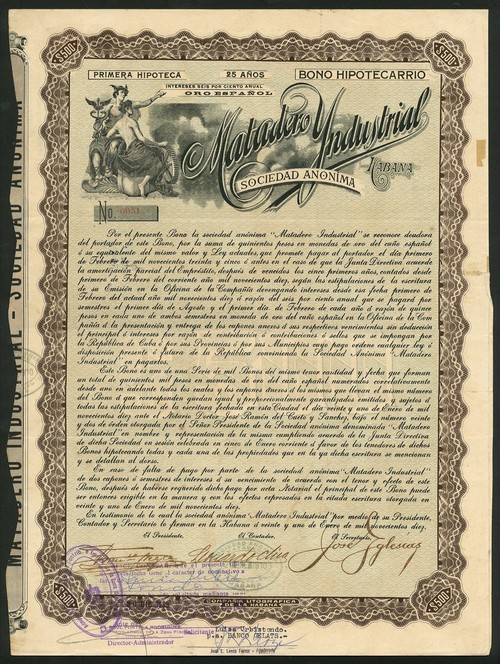 $500
$500
PRIMERA HIPOTECA
25 AÑOS
BONO HIPOTECARRIO
INTERESES SEIS POR CIENTO ANUAL
ORO ESPAÑOL
Matadero Yndustrial
SOCIEDAD ANÓNIMA
HABANA
No. 0051
Por el presente Bono la sociedad anónima "Matadero Industrial" se reconoce deudora
del portador de este Bono, por la suma de quinientos pesos en monedas de oro del cuño español
ó su equivalente del mismo valor y Ley actuales, que promete pagar al portador el dia primero
de Febrero de mil novecientos treinta y cinco ó antes en el caso de que la Junta Directiva acuerde
la amortización parcial del Empréstito, después de vencidos los cinco primeros años, contados desde
primero de Febrero del corriente año mil novecientos diez, según las estipulaciones de la escritura
de su Emisión en la Oficina de la Compañía devengando interés desde esa fecha primero de
Febrero del actual año mil novecientos diez á razón del seis por ciento anual que se pagará por
semestres el primer día de Agosto y el primer día de Febrero de cada año á razón de quince
pesos en cada uno de ambos semestres en moneda de oro del cuño español en la Oficina de la Com
pañía á la presentación y entrega de los cupones anexos á sus respectivos vencimientos sin deducción
el principal é interéss por razón de contribución ó contribuciones ó sellos que se impongan por
la República de Cuba ó por sus Provincias ó por sus Municipios cuyo pago ordene cualquier ley ó
disposición presente ó futura de la República conviniendo la Sociedad Anónima "Matadero
Industrial" en pagarlos.
Este Bono es uno de una Serie de mil Bonos del mismo tenor cantidad y fecha que forman
un total de quinientos mil pesos en monedas de oro del cuño español numerados correlativamente
desde uno en adelante todos los cuales y los cupones anexos á los mismos que lleven el mismo número
del Bono á que correspondan quedan igual y proporcionalmente garantidos emitidos y sujetos á
todas las estipulaciones de la escritura fechada en esta Ciudad el día veinte y uno de Enero de mil
novecientos diez, ante el Notario Doctor José Ramón del Cueto y Sanchez, bajo el número veinte
y dos de orden otorgada por el Señor Presidente de la Sociedad anónima denominada "Matadero
Industrial" en nombre y representación de la misma cumpliendo acuerdo de la Junta Directiva
de dicha Sociedad en sesión celebrada en cinco de Enero corriente á favor de los tenedores de dichos
Bonos hipotecando todas y cada una de las propiedades que en la ya dicha escritura se mencionan
y se detallan al dorso.
En caso de falta de pago por parte de la sociedad anónima "Matadero Industrial"
de dos cupones ó semestres de intereses á su vencimiento de acuerdo con el tenor y efecto de este
Bono, después de habérse requerido dicho pago por acta Notarial el principal de este Bono puede
ser entonces exigible en la manera y con los efectos expresados en la citada escritura otorgada en
veinte y uno de Enero de mil novecientos diez.
En testimonio de lo cual la sociedad anónima "Matadero Industrial" por medio de su Presidente,
Contador y Secretario lo firman en la Habana á veinte y uno de Enero de mil novecientos diez.
El Presidente,
El Contador,
El Secretario,
José Yglesias
COMPAÑIA LITOGRAFICA
DE LA HABANA
Solicitante
Luisa Urbistondo.
p.a. BANCO GELATS.
Director-Administrador
$500
$500
MATADERO INDUSTRIAL – SOCIEDAD ANONIMA